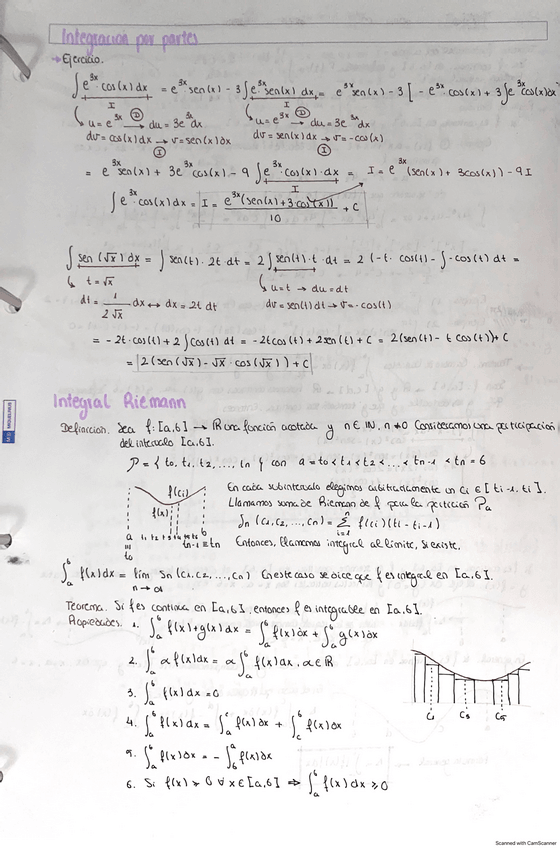 Integración por partes
→ Ejercicio.
∫ e^3x · cos(x) dx = e^3x sen(x) - 3 ∫ e^3x sen(x) dx = e^3x sen(x) - 3 [ - e^3x cos(x) + 3 ∫ e^3x cos(x) dx
I
u = e^3x Ⓓ → du = 3e^3x dx
u = e^3x Ⓓ → du = 3e^3x dx
dv = cos(x) dx → v = sen(x) dx
dv = sen(x) dx → v = -cos(x)
Ⓘ
Ⓘ
= e^3x sen(x) + 3e^3x cos(x) - 9 ∫ e^3x · cos(x) · dx = I = e^3x (sen(x) + 3cos(x)) - 9I
I
∫ e^3x · cos(x) dx = I = e^3x (sen(x) + 3 cos(x)) / 10 + C
∫ sen (√x) dx = ∫ sen(t) · 2t dt = 2 ∫ sen(t) · t · dt = 2 (-t · cos(t) - ∫ -cos(t) dt =
t = √x
u = t → du = dt
dt = 1 / 2√x dx ↔ dx = 2t dt
dv = sen(t) dt → v = -cos(t)
= -2t · cos(t) + 2 ∫ cos(t) dt = -2t cos(t) + 2sen(t) + C = 2(sen(t) - t cos(t)) + C
= 2 (sen(√x) - √x · cos(√x)) + C
Integral Riemann
Definición. Sea f: [a,b] → R una función acotada y n ∈ IN, n ≠ 0 Consideramos una participación
del intervalo [a,b].
P = { t0, t1, t2, ..., tn } con a = t0 < t1 < t2 < ... < tn-1 < tn = b
f(ci)
f(x)
a
b
t0
tn-1 = tn
En cada subintervalo elegimos arbitrariamente un Ci ∈ [ti-1, ti].
Llamamos suma de Riemann de f para la partición Pa
Sn (C1, C2, ..., Cn) = Σ i=1 n f(ci) (ti - ti-1)
Entonces, llamamos integral al límite, si existe.
∫ a b f(x) dx = lím n→∞ Sn (C1, C2, ..., Cn) En este caso se dice que f es integral en [a,b].
Teorema. Si f es continua en [a,b], entonces f es integrable en [a,b].
Propiedades. 1. ∫ a b f(x) + g(x) dx = ∫ a b f(x) dx + ∫ a b g(x) dx
2. ∫ a b α f(x) dx = α ∫ a b f(x) dx, α ∈ R
3. ∫ a f(x) dx = 0
4. ∫ a b f(x) dx = ∫ a c f(x) dx + ∫ c b f(x) dx
5. ∫ a b f(x) dx = - ∫ b a f(x) dx
6. Si f(x) ≥ 0 ∀ x ∈ [a,b] ⇒ ∫ a b f(x) dx ≥ 0
C1 C3 C5
Scanned with CamScanner